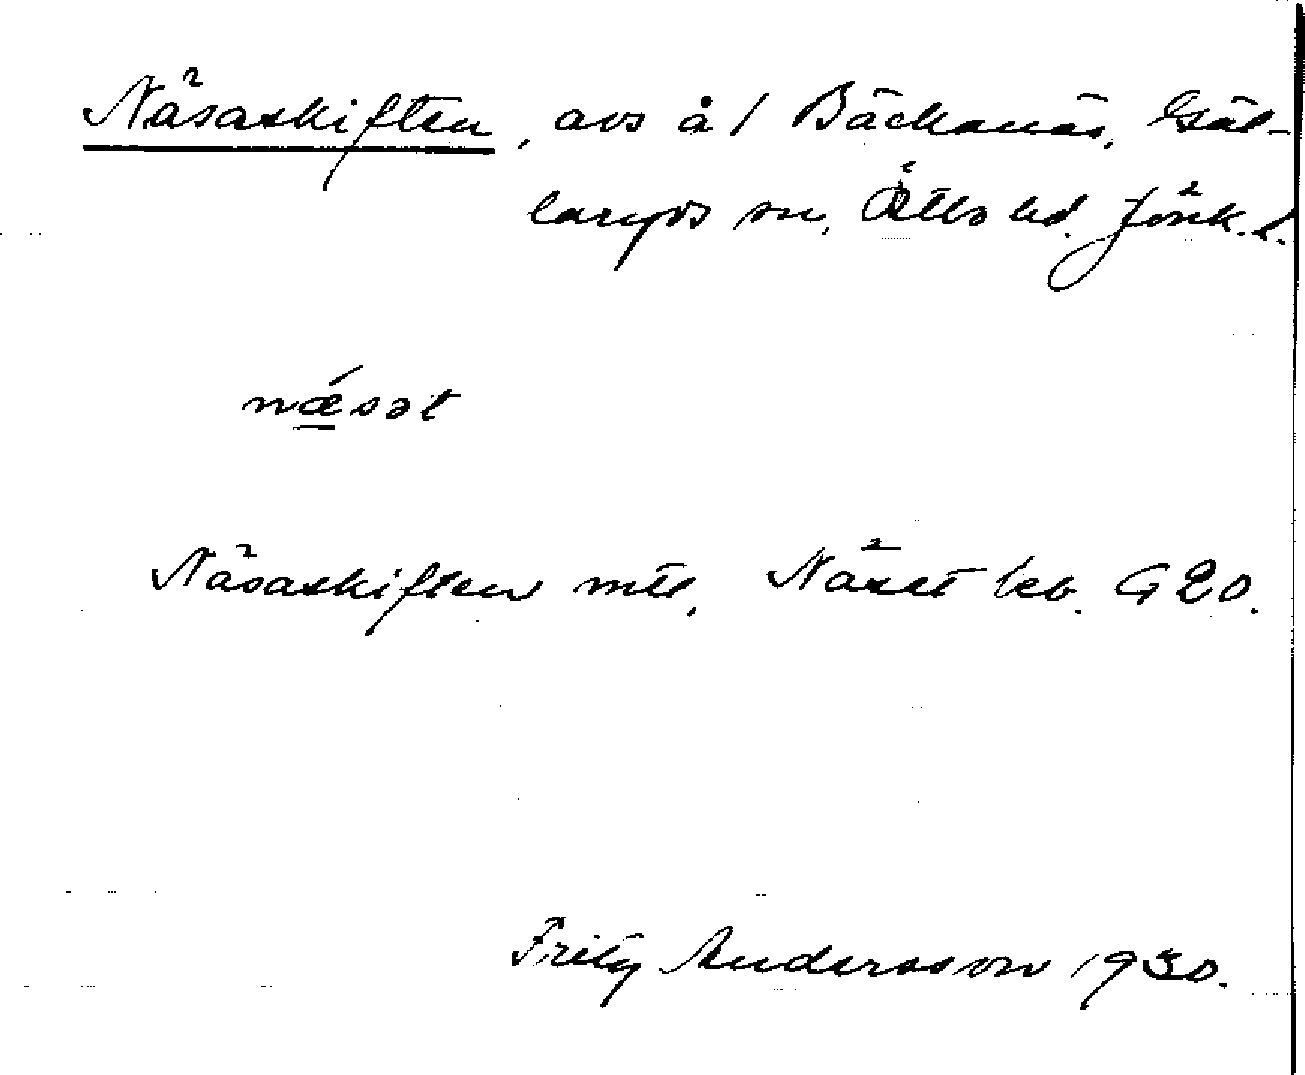 Näsaskiften, avs å / Bäckanäs, Gäl-
laryds sn, Östbo hd. Jönk.l.
næ´sət
Näsaskiften mtl, Näset lev. G20.
Fritz Andersson 1930.